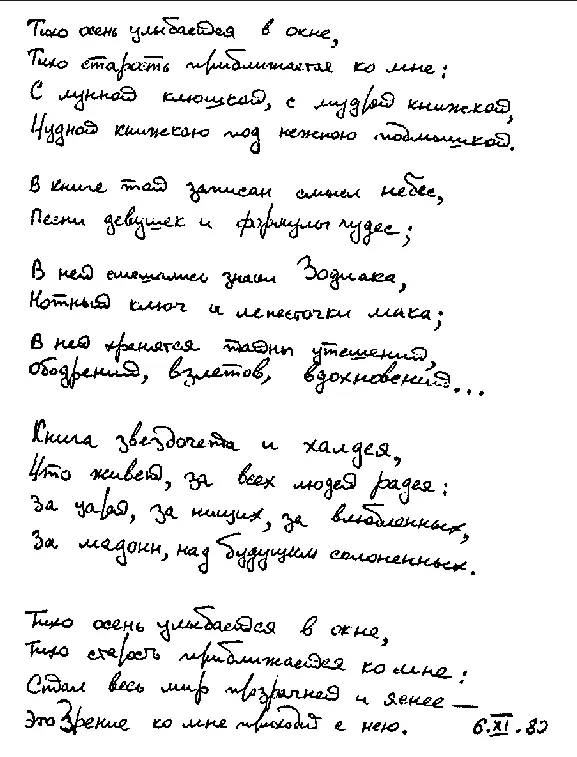 Тихо осень улыбается в окне,
Тихо старость приближается ко мне:
С лунной клюшкой, с мудрой книжкой,
Чудной книжкою под нежною подмышкой.
В книге той записан смысл небес,
Песни девушек и формулы чудес;
В ней смешались знаки Зодиака,
Нотный ключ и лепесточки мака;
В ней хранятся тайны утешений,
Ободрений, взлетов, вдохновений...
Книга звездочета и халдея,
Что живет, за всех людей радея:
За царя, за нищих, за влюбленных,
За мадонн, над будущим склоненных.
Тихо осень улыбается в окне,
Тихо старость приближается ко мне:
Стал весь мир прозрачней и яснее —
Это Зрение ко мне приходит с нею. 6.XI.82